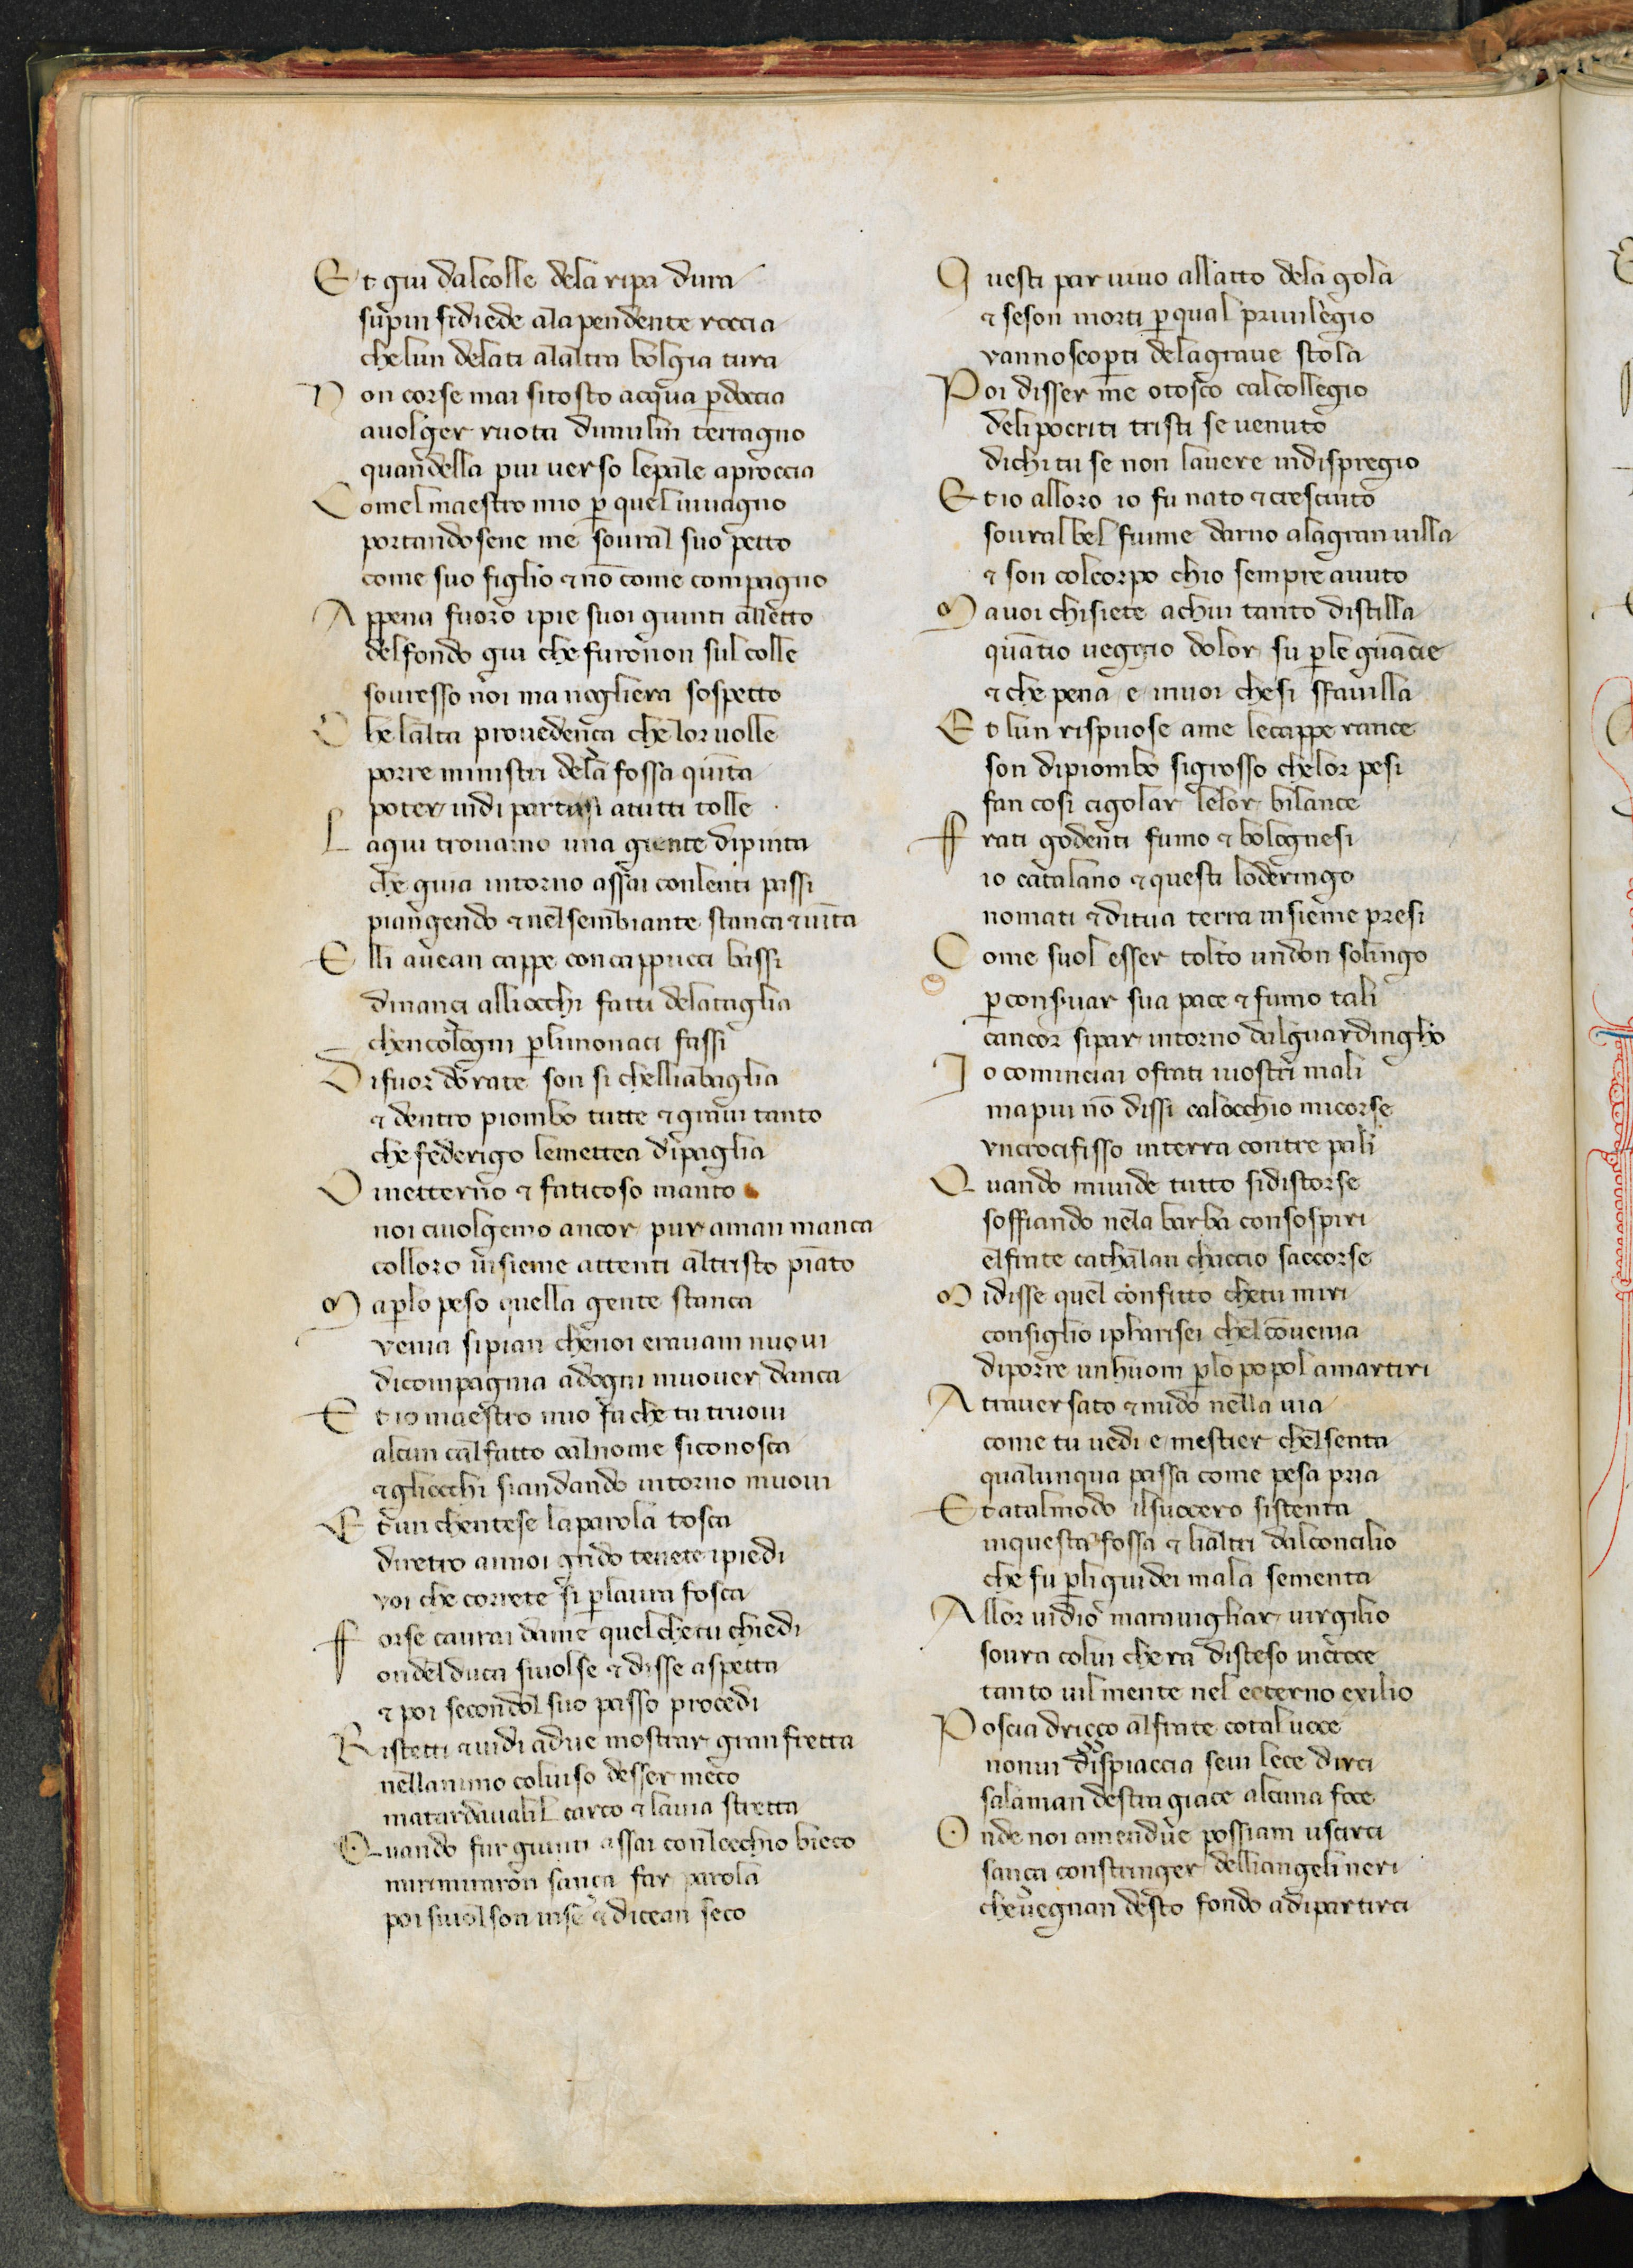 Et giu dalcollo dela ripa dura
supin sidiede ala pendente roccia
chelun delati alaltra bolgia tura
Non corse mai sitosto acqua p doccia
avolger ruota dimulin terragno
quandella piu verso lepale aproccia
Comel maestro mio p quel vivagno
portandosene me soural suo petto
come suo figlio & nō come compagno
Appena fuoro ipie suoi giunti alletto
delfondo giu che furonon sul colle
sovresso noi ma nogliera sospetto
Che lalta provedença che lor volle
porre ministri dela fossa quinta
poter indi partirsi atutti tolle
Lagiu trovamo una gente dipinta
che giua intorno assai conlenti passi
piangendo & nelsembiante stanca & vinta
Elli avean cappe concappucci bassi
dinanci alliocchi fatti delataglia
chencologni p limonaci fassi
Difuor dorate son si chelliabaglia
& dentro piombo tutte & gravi tanto
che federigo lemettea dipaglia
O inetterno & faticoso manto
noi civolgemo ancor pur aman manca
colloro insieme attenti altristo pianto
Ma plo peso quella gente stanca
venia sipian chenoi eravam nuovi
dicompagnia adogni muover danca
Et io maestro mio fa che tu truovi
alcun calfatto oalnome siconosca
& gliocchi siandando intorno muovi
Et un chentese laparola tosca
diretro annoi grido tenete ipiedi
voi che correte si p laura fosca
Fforse cavrai dame quel chetu chiedi
ondelduca sivolse & disse aspetta
& poi secondol suo passo procedi
Ristetti & vidi adue mostrar gran fretta
nellanimo colviso desser meco
matardavalil carco & lavia stretta
Quando fur giunti assai conlocchio bieco
mirimiraron sança far parola
poi sivolson inse & dicean seco
Questi par vivo allatto dela gola
& seson morti p qual privilegio
vannoscoperti delagrave stola
Poi disser me otosco calcollegio
delipocriti tristi se venuto
dichi tu se non lavere indispregio
Et io alloro io fu nato & cresciuto
soural bel fiume darno alagran villa
& son colcorpo chio sempre avuto
Ma voi chisiete achui tanto distilla
quātio veggio dolor su p le guācie
& che pena e invoi chesi sfavilla
Et lun rispuose ame lecappe rance
son dipiombo sigrosso chelor pesi
fan cosi cigolar lelor bilance
Ffrati godenti fumo & bolognesi
io catalano & questi loderingo
nomati & ditua terra insieme presi
Come suol esser tolto undon solingo
p conservar sua pace & fumo tali
cancor sipar intorno dalguardingho
Io cominciai ofrati ivostri mali
ma piu nō dissi calocchio micorse
vncrocifisso interra contre pali
Quando mivide tutto sidistorse
soffiando nela barba consospiri
elfrate cathalan chaccio saccorse
Midisse quel confitto chetu miri
consiglio ipharisei chelcōvenia
diporre unhuom p lo popol amartiri
Atraversato & nudo nella via
come tu vedi e mestier chelsenta
qualunqua passa come pesa pria
Et atalmodo ilsuocero sistenta
inquesta fossa & lialtri dalconcilio
che fu p li giudei mala sementa
Allor vidio maravigliar virgilio
soura colui chera disteso incroce
tanto vilmente nel eeterno exilio
Poscia driçço alfrate cotal voce
nonvi dispiaccia sevi lece dirci
salaman destra giace alcuna foce
Onde noi amendue possiam uscirci
sança constringer delliangeli neri
chevegnan desto fondo adipartirci